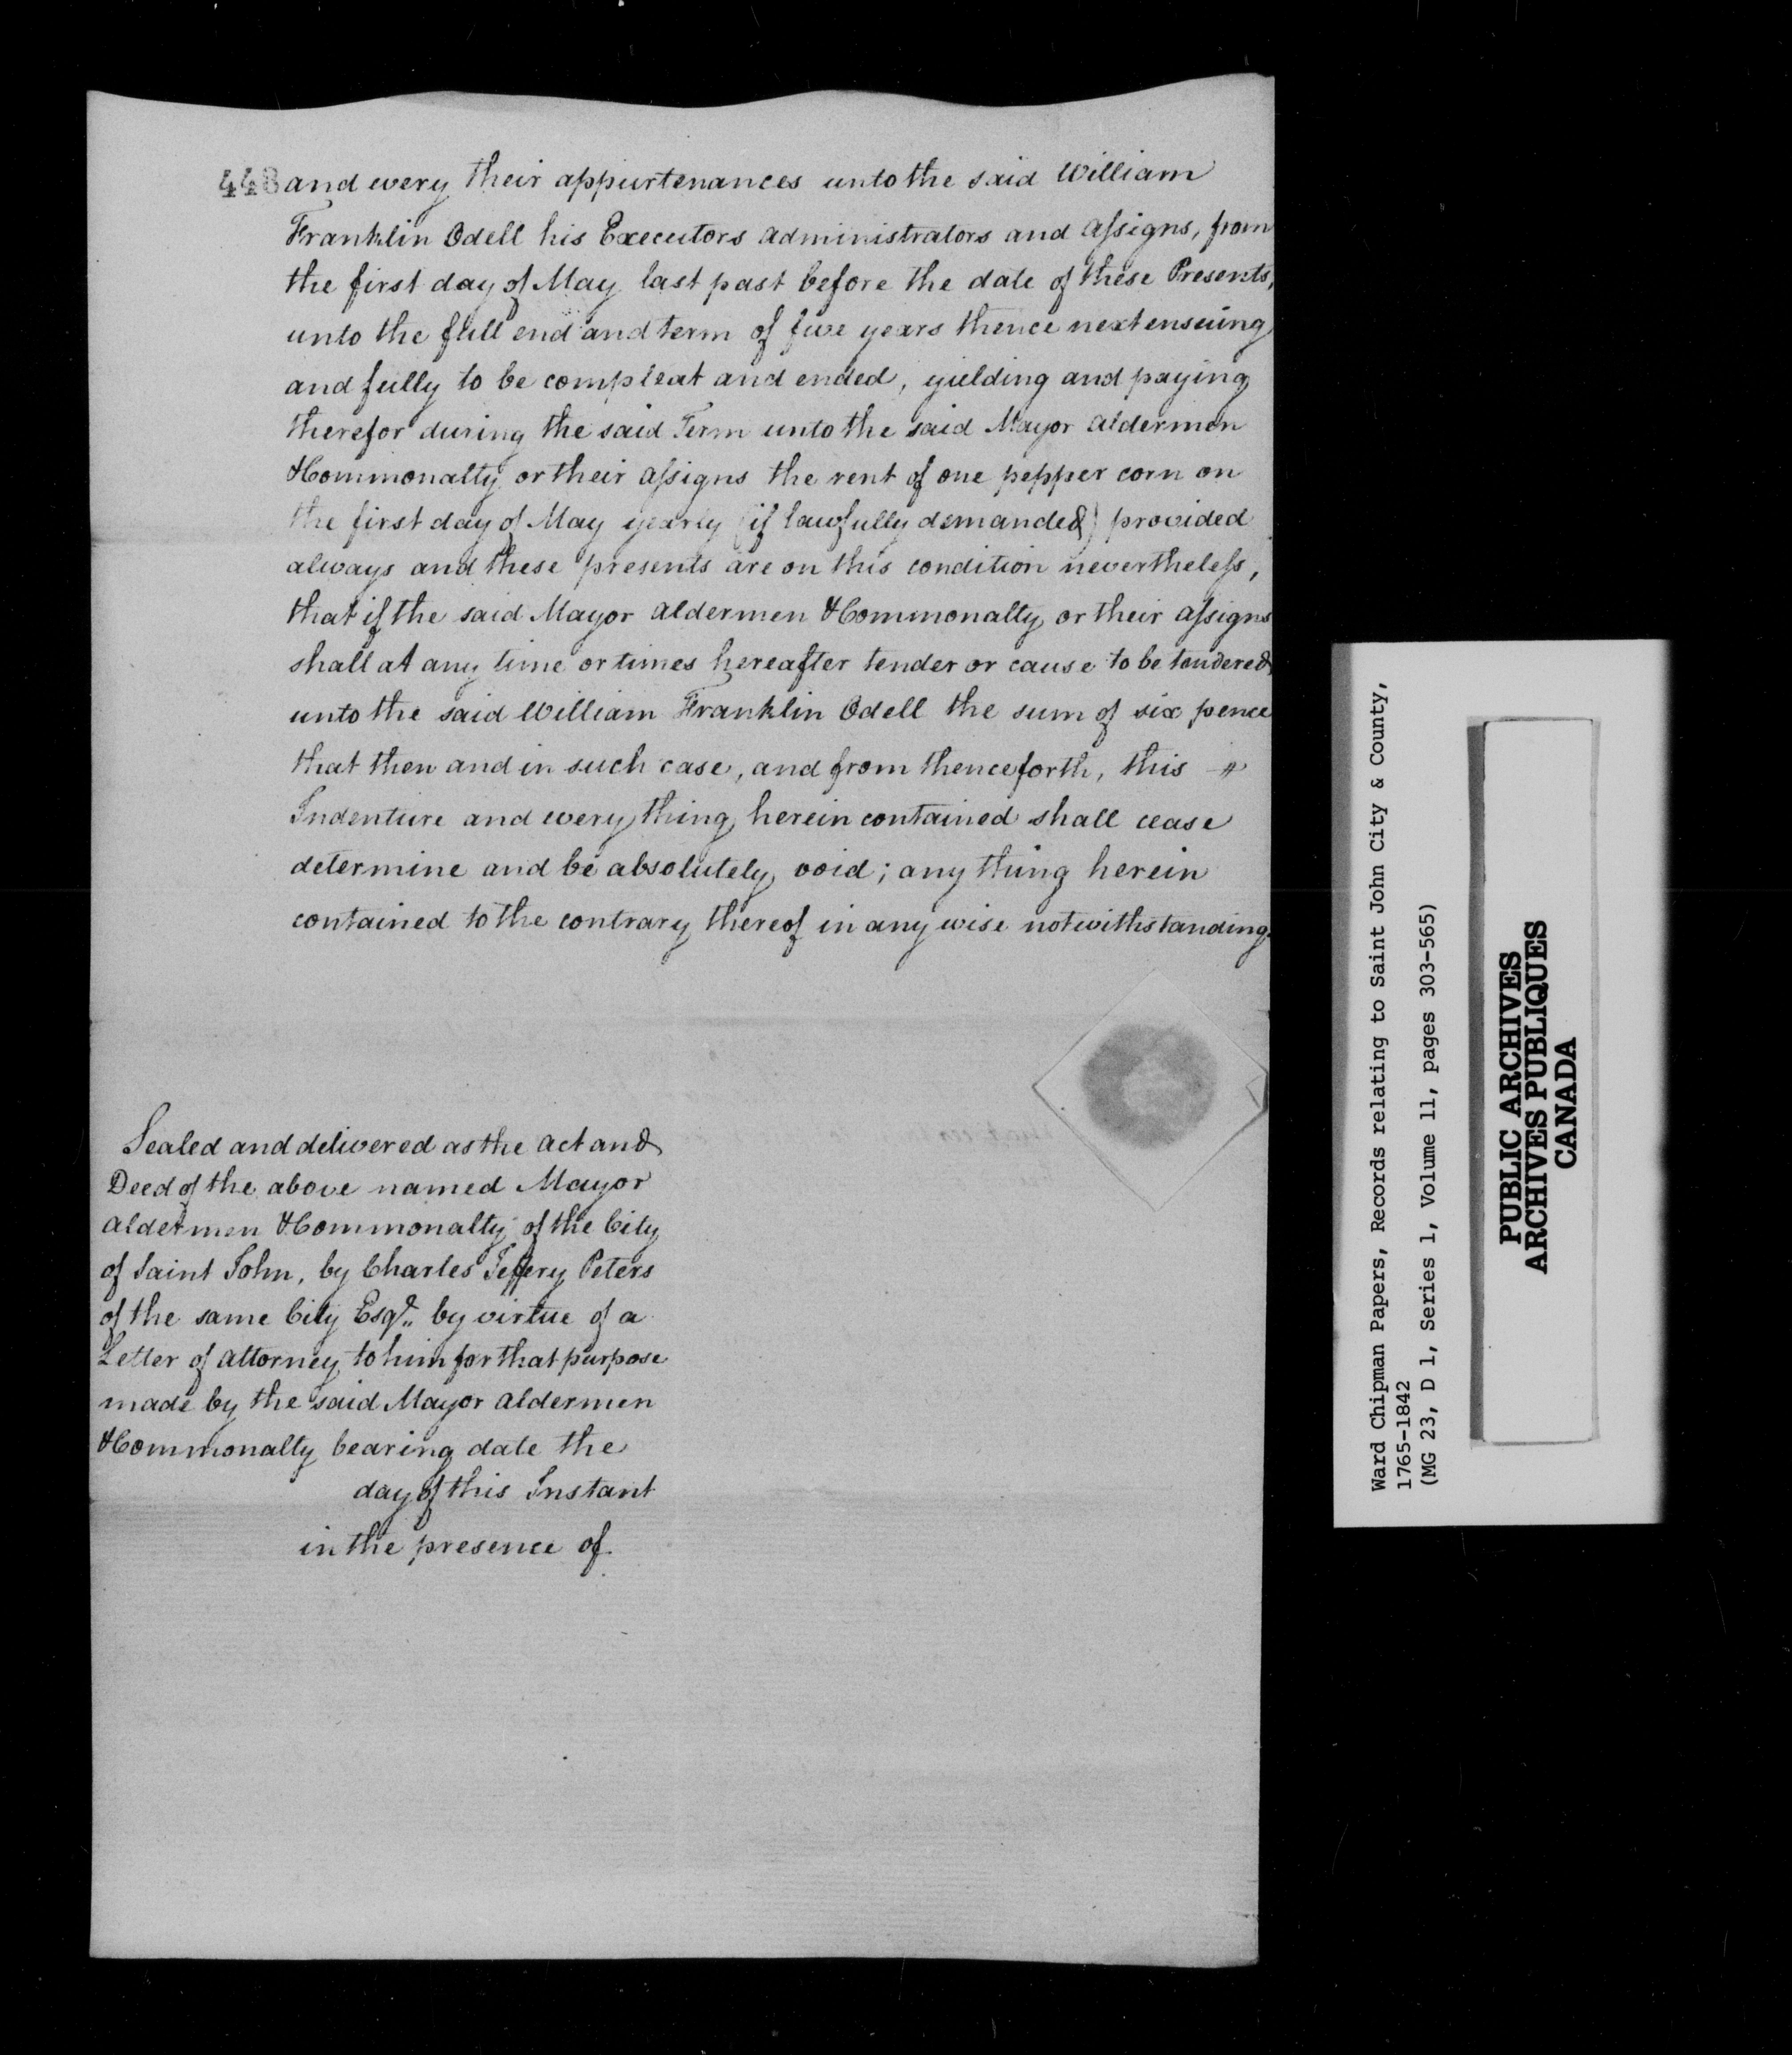 448 and every their appurtenances unto the said William
Franklin Odell his Executors administrators and assigns, from
the first day of May last past before the date of these Presents,
unto the full end and term of five years thence next ensuing
and fully to be compleat and ended, yielding and paying
therefor during the said Term unto the said Mayor aldermen
&Commonalty or their assigns the rent of one pepper corn on
the first day of May yearly (if lawfully demanded) provided
always and these presents are on this condition nevertheless,
that if the said Mayor aldermen &Commonalty or their assigns
shall at any time or times hereafter tender or cause to be tendered
unto the said William Franklin Odell the sum of six pence
that then and in such case, and from thenceforth, this
Indenture and every thing herein contained shall cease
determine and be absolutely void; any thing herein
contained to the contrary thereof in any wise notwithstanding.
Sealed and delivered as the act and
Deed of the above named Mayor
aldermen &Commonalty of the City
of Saint John, by Charles Jeffery Peters
of the same City Esqr. by virtue of a
Letter of attorney to him for that purpose
made by the said Mayor aldermen
&Commonalty bearing date the
day of this Instant
in the presence of
Ward Chipman Papers, Records relating to Saint John City & County,
1765-1842
(MG 23, D 1, Series 1, Volume 11, pages 303-565)
PUBLIC ARCHIVES
ARCHIVES PUBLIQUES
CANADA